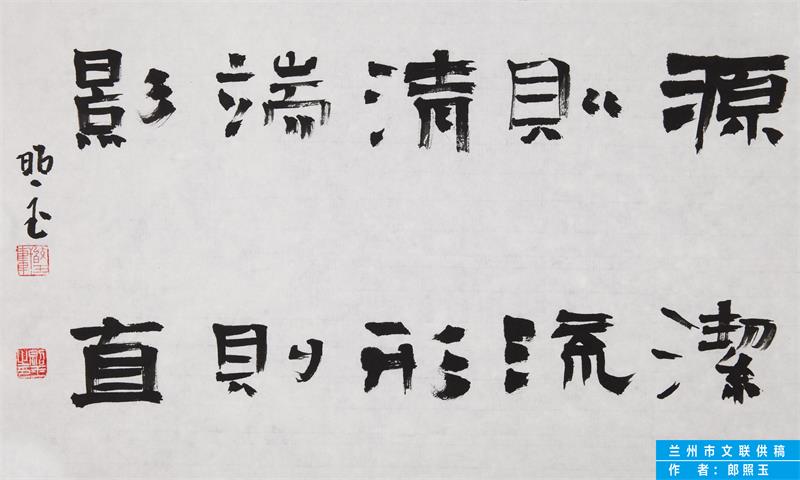 源潔
則流
清形
端則
影直
照玉
兰州市文联供稿
作 者：郎照玉